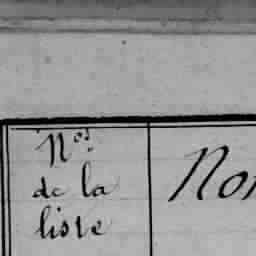 Nos
de la
liste
Nom